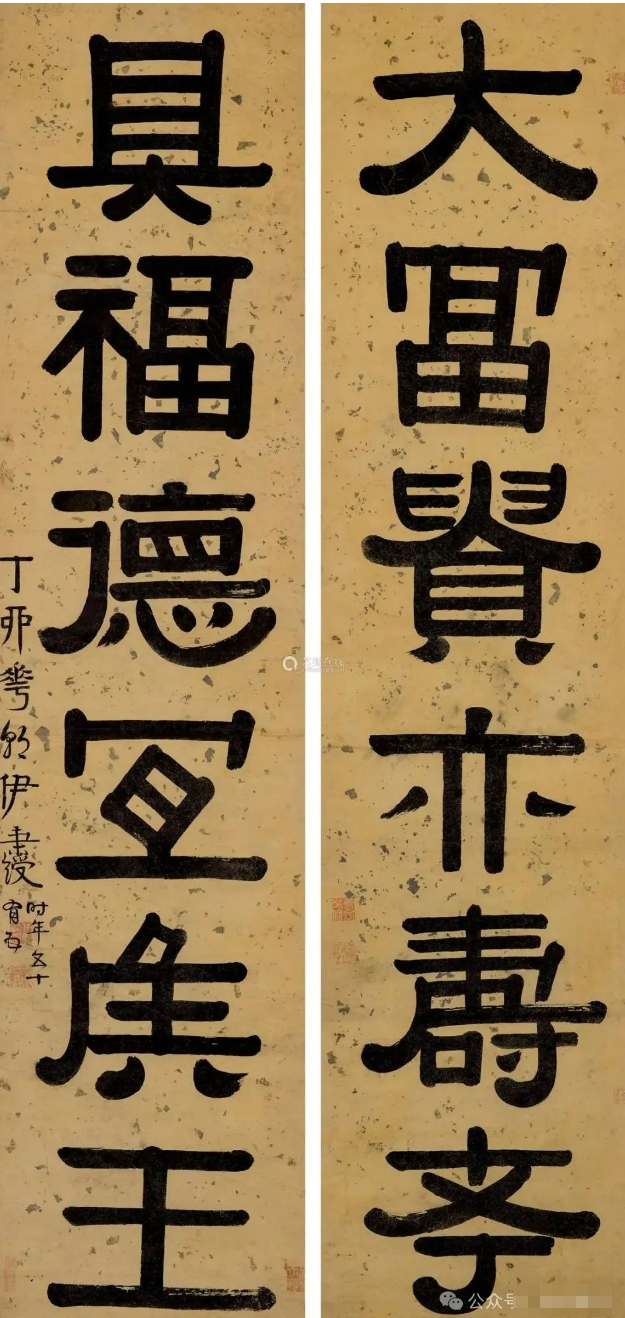 大冨貴亦壽考
具福德宜矦王
丁卯華朝伊秉綬
时年五十
有四
公众号